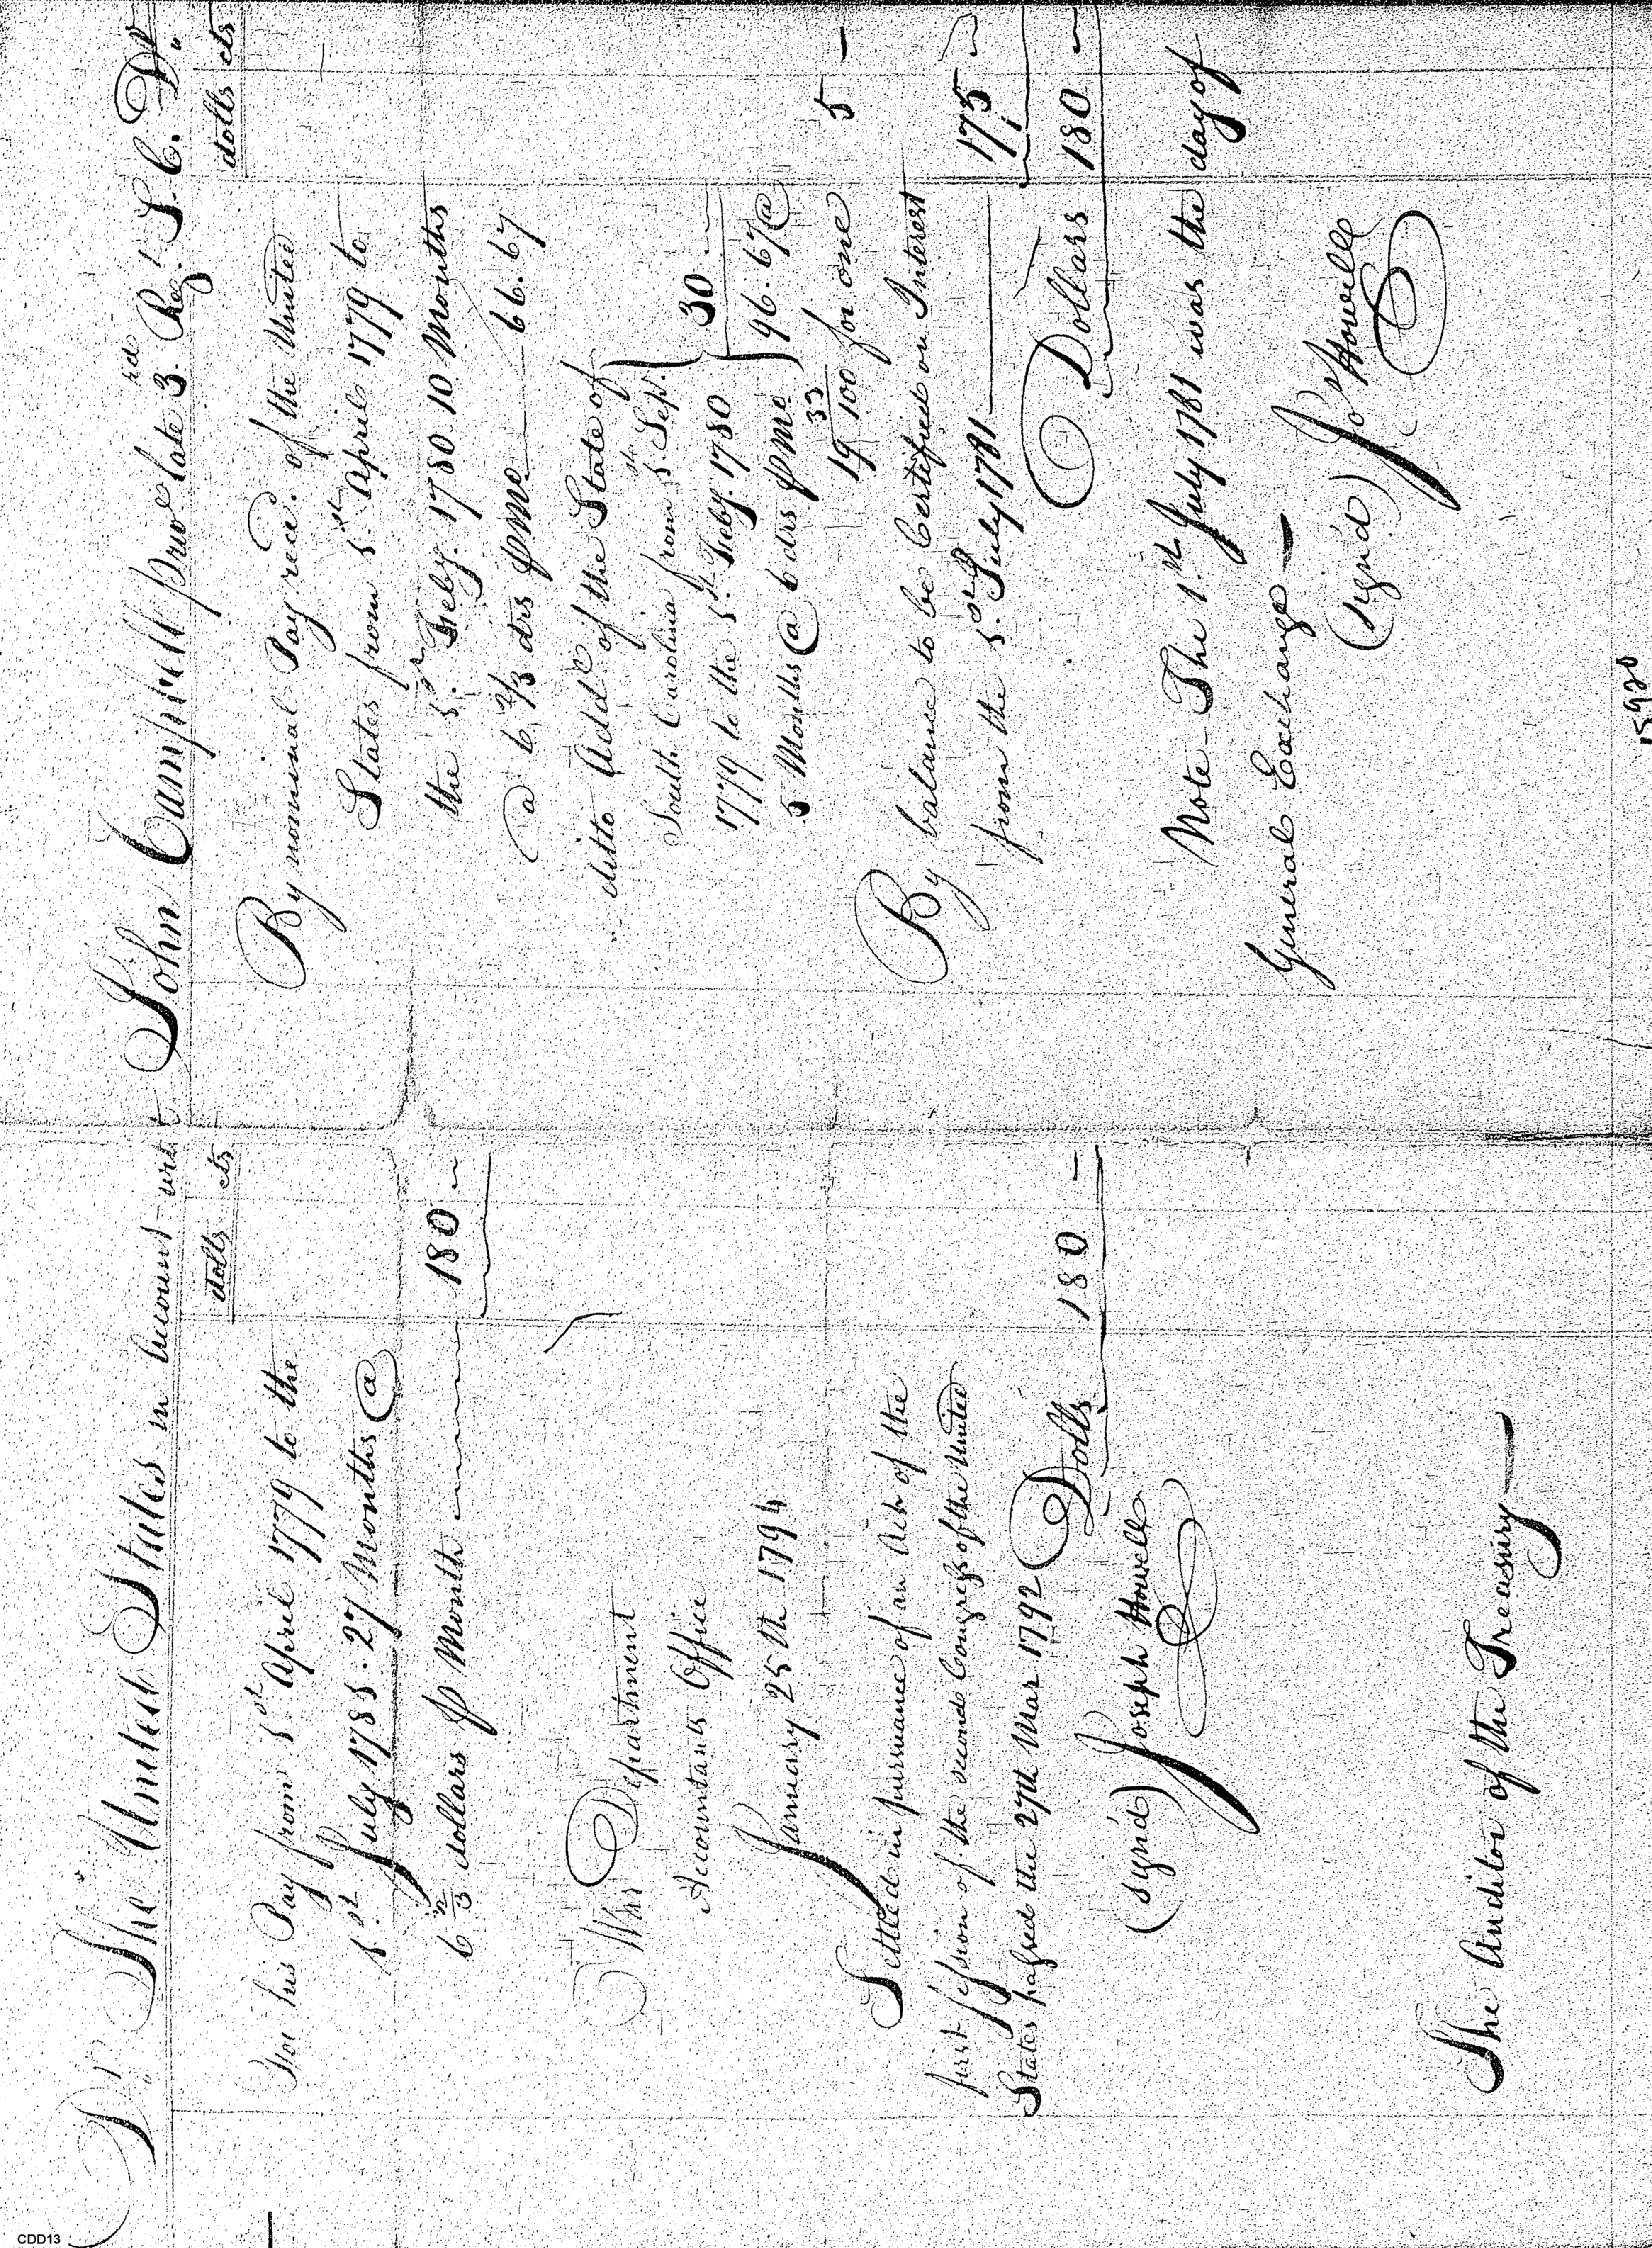 Dr. The United States in Account with John Campbell priv late 3rd Regt. S. C. Dr.
dolls cts
For his Pay from 5th April 1779 to the
5th July 1785. 27 Months @
6 2/3 dollars p Month 180
War Department
Accountants Office
January 25th 1794
Settled in pursuance of an Act of the
first session of the second Congress of the United
States passed the 27th Mar 1792 Dolls 180
(signd) Joseph Howell
The Auditor of the Treasury
dolls cts
By nominal Pay recd. of the United
States from 5th April 1779 to
the 5th Feby. 1780. 10 Months
@ 6 2/3 drs p Mo 66.67
ditto Add of the State of
South Carolina from 5th Sep.
1779 to the 5th Feby. 1780
5 Months @ 6 drs p Mo. } 30
96.67 @
19 33/100 for one 5
By balance to be Certified on Interest
from the 5th July 1781 175
Dollars 180
Note - The 1st July 1781 was the day of
General Exchange
(signd) Jo Howell
15920
CDD13